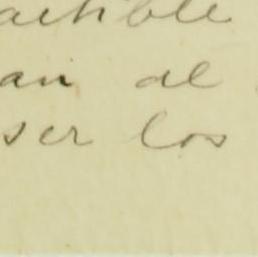 actible
an al
ser los